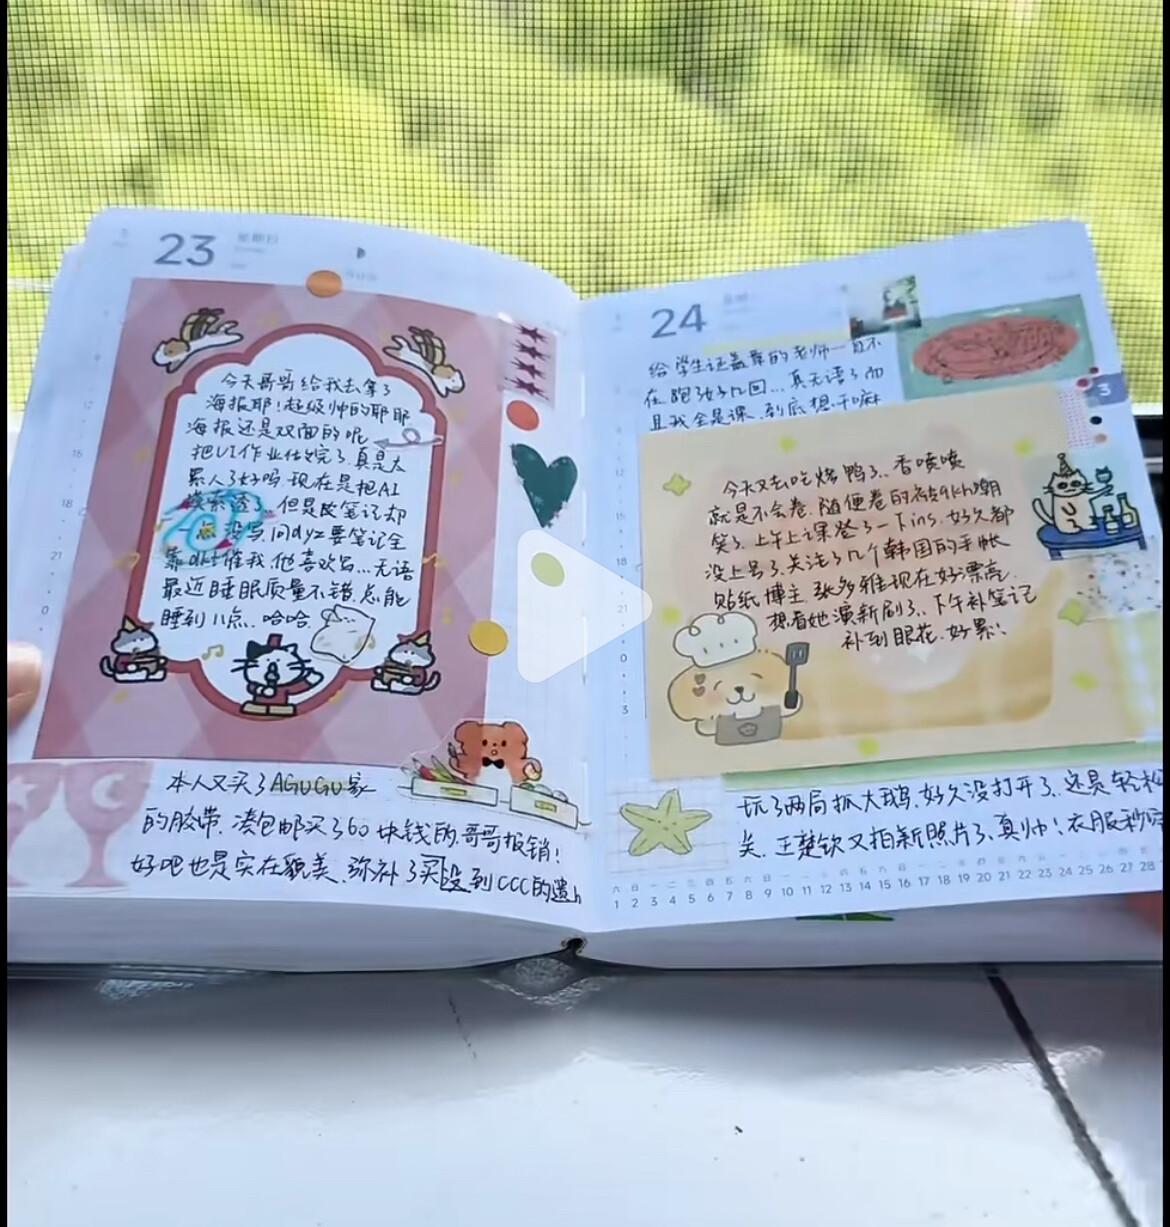 23
星期日
今天哥哥给我去拿了
海报耶！超级帅的耶耶
海报还是双面的呢
把UI作业做完了真是太
累人了好吗 现在是把AI
摸索透了..但是改笔记却
没写.问dyz要笔记全
靠dkt催我 他喜欢名...无语
最近睡眠质量不错.总能
睡到八点..哈哈
本人又买了AGUGU家
的胶带.凑包邮买了60块钱的.哥哥报销！
好吧也是实在貌美.弥补了买没到CCC的遗
24
给学生证盖章的老师一直不
在 跑了好几回...真无语了而
且我全是课.到底想干嘛
今天又去吃烤鸭了..香喷喷
就是不会卷.随便卷的被嘲
笑了.上午上课登了一下ins.好久都
没上号了.关注了几个韩国的手帐
贴纸博主.张多雅现在好漂亮
想看她演新剧了.下午补笔记
补到眼花.好累！
玩了两局抓大鹅.好久没打开了.还是轻松
关.王楚钦又拍新照片了.真帅！衣服
3
12
15
18
21
0
12
15
18
21
0
3
六 日 一 二 三 四 五 六 日 一 二 三 四 五 六 日 一 二 三 四 五 六 日 一 二 三 四 五
1 2 3 4 5 6 7 8 9 10 11 12 13 14 15 16 17 18 19 20 21 22 23 24 25 26 27 28